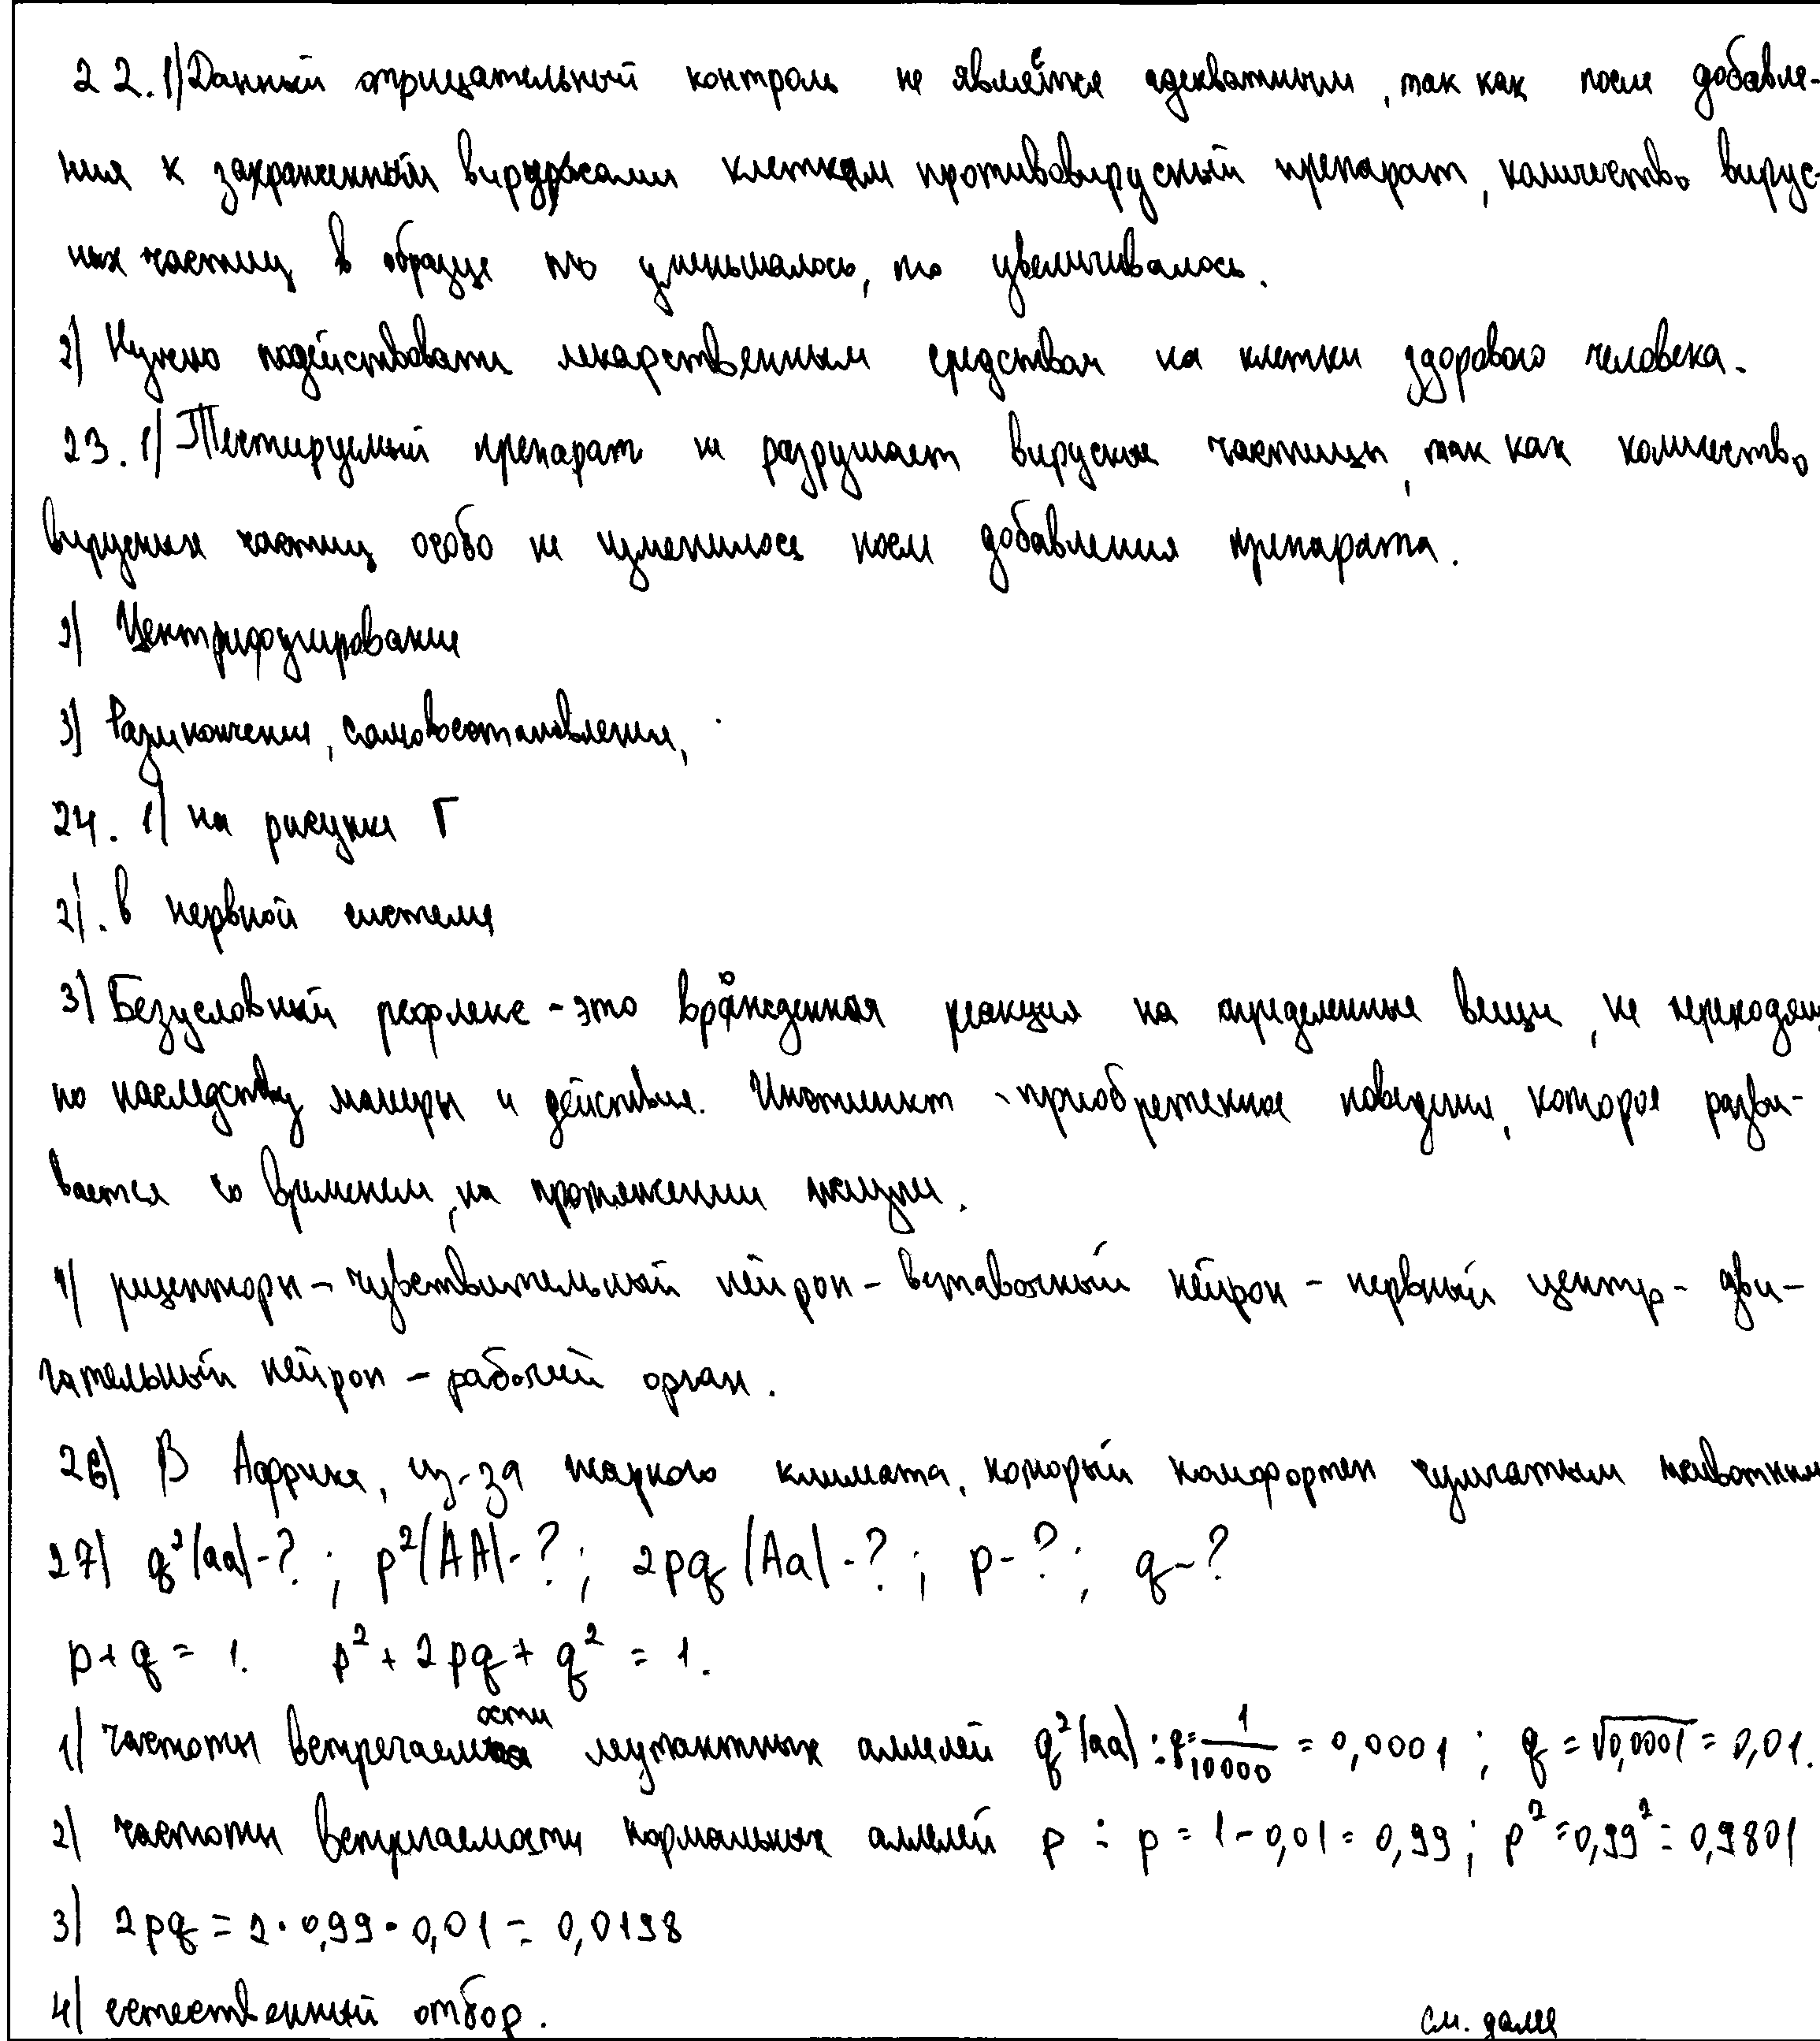 22. 1) Данный отрицательный контроль не является адекватным, так как после добавле-
ния к захраненный вирусами клеткам противовирусный препарат, количество вирус-
ных частиц в образце то уменьшалось, то увеличивалось.
2) Нужно подействовать лекарственным средствам на клетки здорового человека.
23. 1) Тестируемый препарат не разрушает вирусные частицы, так как количество
вирусных частиц особо не изменилось после добавления препарата.
2) Центрифугирование
3) Размножение, самовосстановление,
24. 1) на рисунке Г
2). в нервной системе
3) Безусловный рефлекс - это врожденная реакция на определенные вещи, не переходящ
по наследству манеры и действия. Инстинкт - приобретенное поведение, которое разви-
вается со временем, на протяжении жизни.
4) рецепторы - чувствительный нейрон - вставочный нейрон - нервный центр - дви-
гательный нейрон - рабочий орган.
26) В Африке, из-за жаркого климата, который комфортен сумчатым животным
27) q²(aa)-?; p²(AA)-?; 2pq(Aa)-?; p-?; q-?
p+q = 1. p² + 2pq + q² = 1.
1) частоты встречаемости мутантных аллелей q²(aa): q = 1/10000 = 0,0001; q = √0,0001 = 0,01.
2) частоты встречаемости нормальных аллелей p : p = 1-0,01 = 0,99; p² = 0,99² = 0,9801
3) 2pq = 2·0,99·0,01 = 0,0198
4) естественный отбор.
см. далее